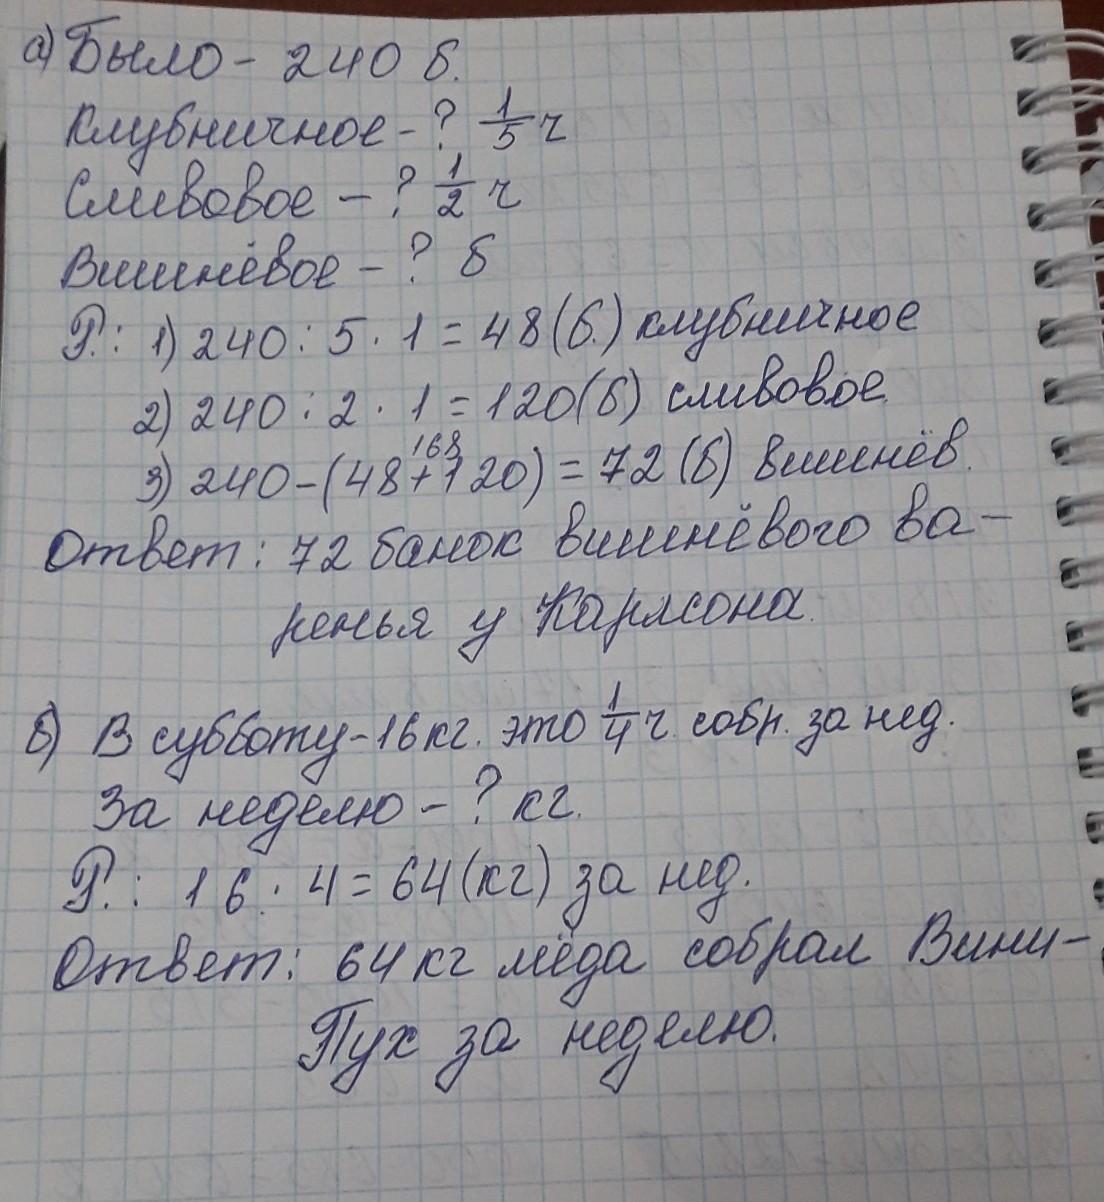 а) Было - 240 б.
Клубничное - ? 1/5 ч
Сливовое - ? 1/2 ч
Вишнёвое - ? б
Р.: 1) 240 : 5 · 1 = 48 (б.) клубничное
2) 240 : 2 · 1 = 120 (б) сливовое.
168
3) 240 - (48 + 120) = 72 (б) вишнёв.
Ответ: 72 банок вишнёвого ва-
ренья у Карлсона.
б) В субботу - 16 кг. это 1/4 ч. собр. за нед.
За неделю - ? кг.
Р.: 16 · 4 = 64 (кг) за нед.
Ответ: 64 кг мёда собрал Вини-
Пух за неделю.